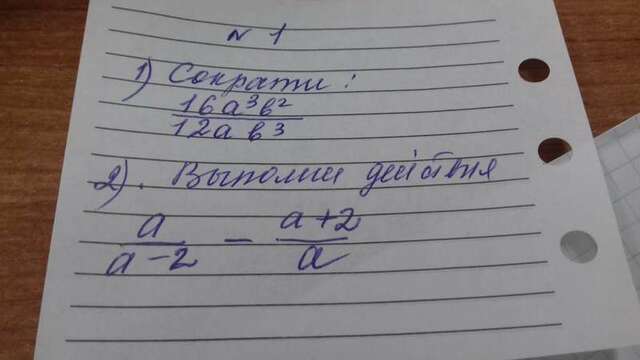 N 1
1) Сократи:
16a³b²
12ab³
2). Выполни действия
a/(a-2) - (a+2)/a